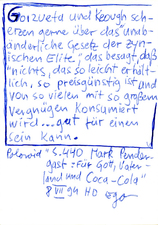 Goizueta und Keough sch-
erzen gerne über das unab-
änderliche Gesetz der zyn-
ischen Elite; das besagt, daß
"nichts, das so leicht erhält-
lich, so preisgünstig ist und
von so vielen mit so großem
Vergnügen konsumiert
wird ... gut für einen
sein kann.
S. 440 Mark Pender-
gast: Für Gott, Vater-
land und Coca-Cola"
8 VII 94 HD